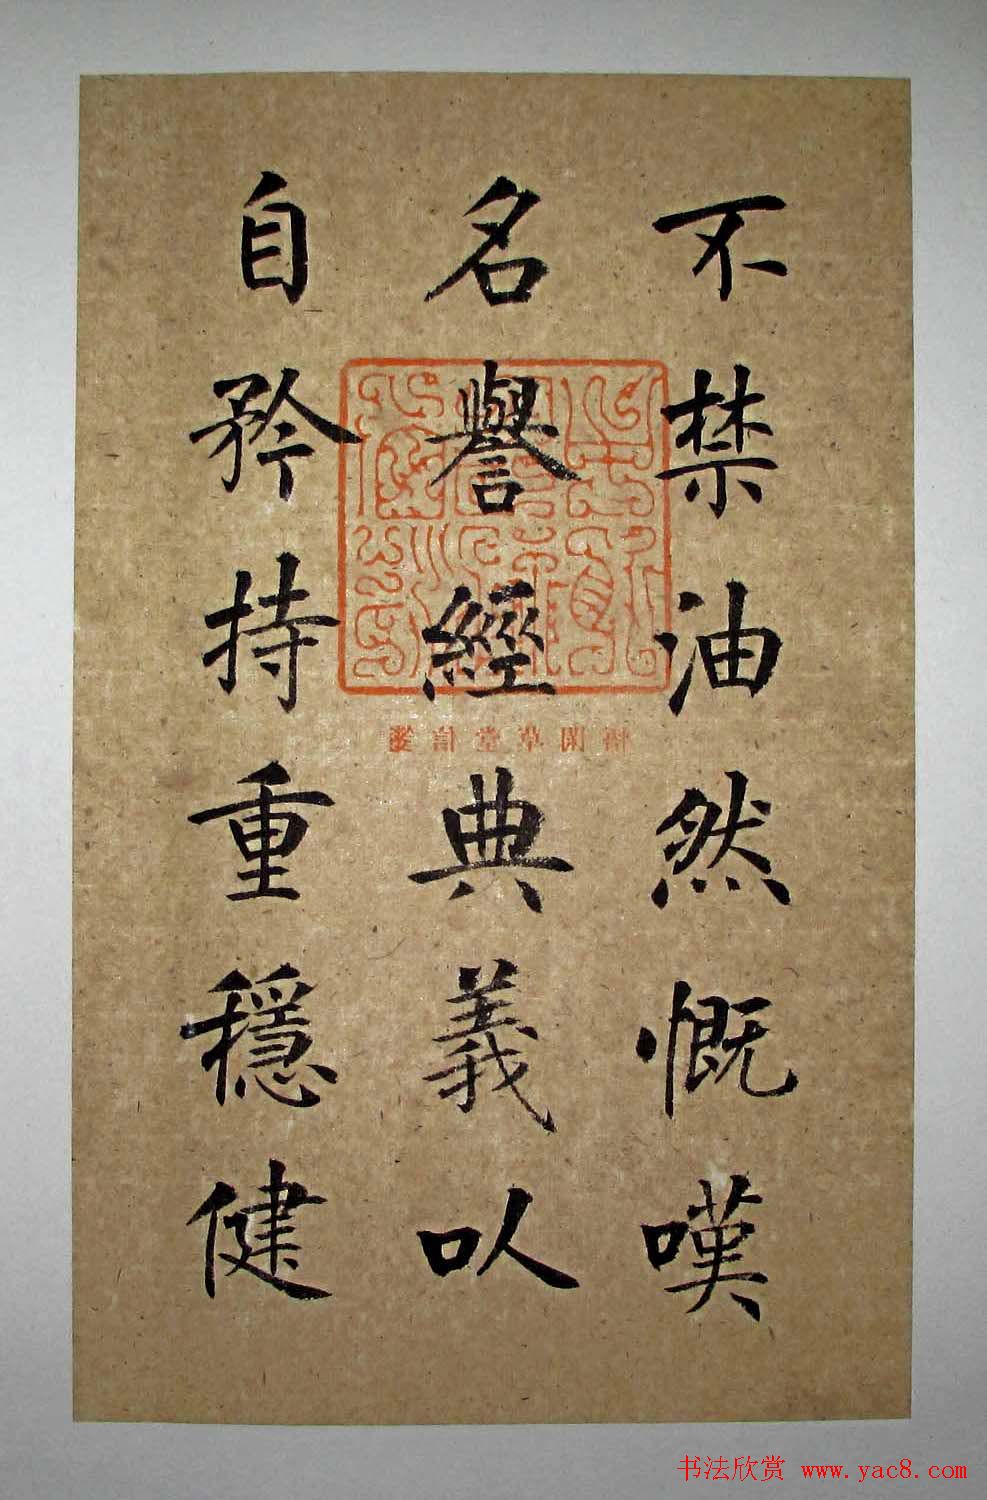 不禁油然慨嘆
名譽經典義以
自矜持重穩健
书法欣赏 www.yac8.com